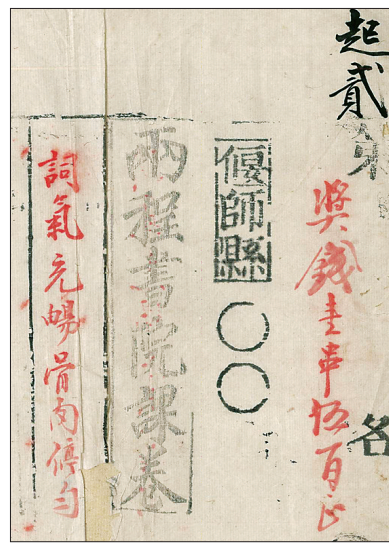 起貳
名
獎錢壹串伍百文
偃師縣
〇〇
兩程書院課卷
詞氣充暢骨肉停勻